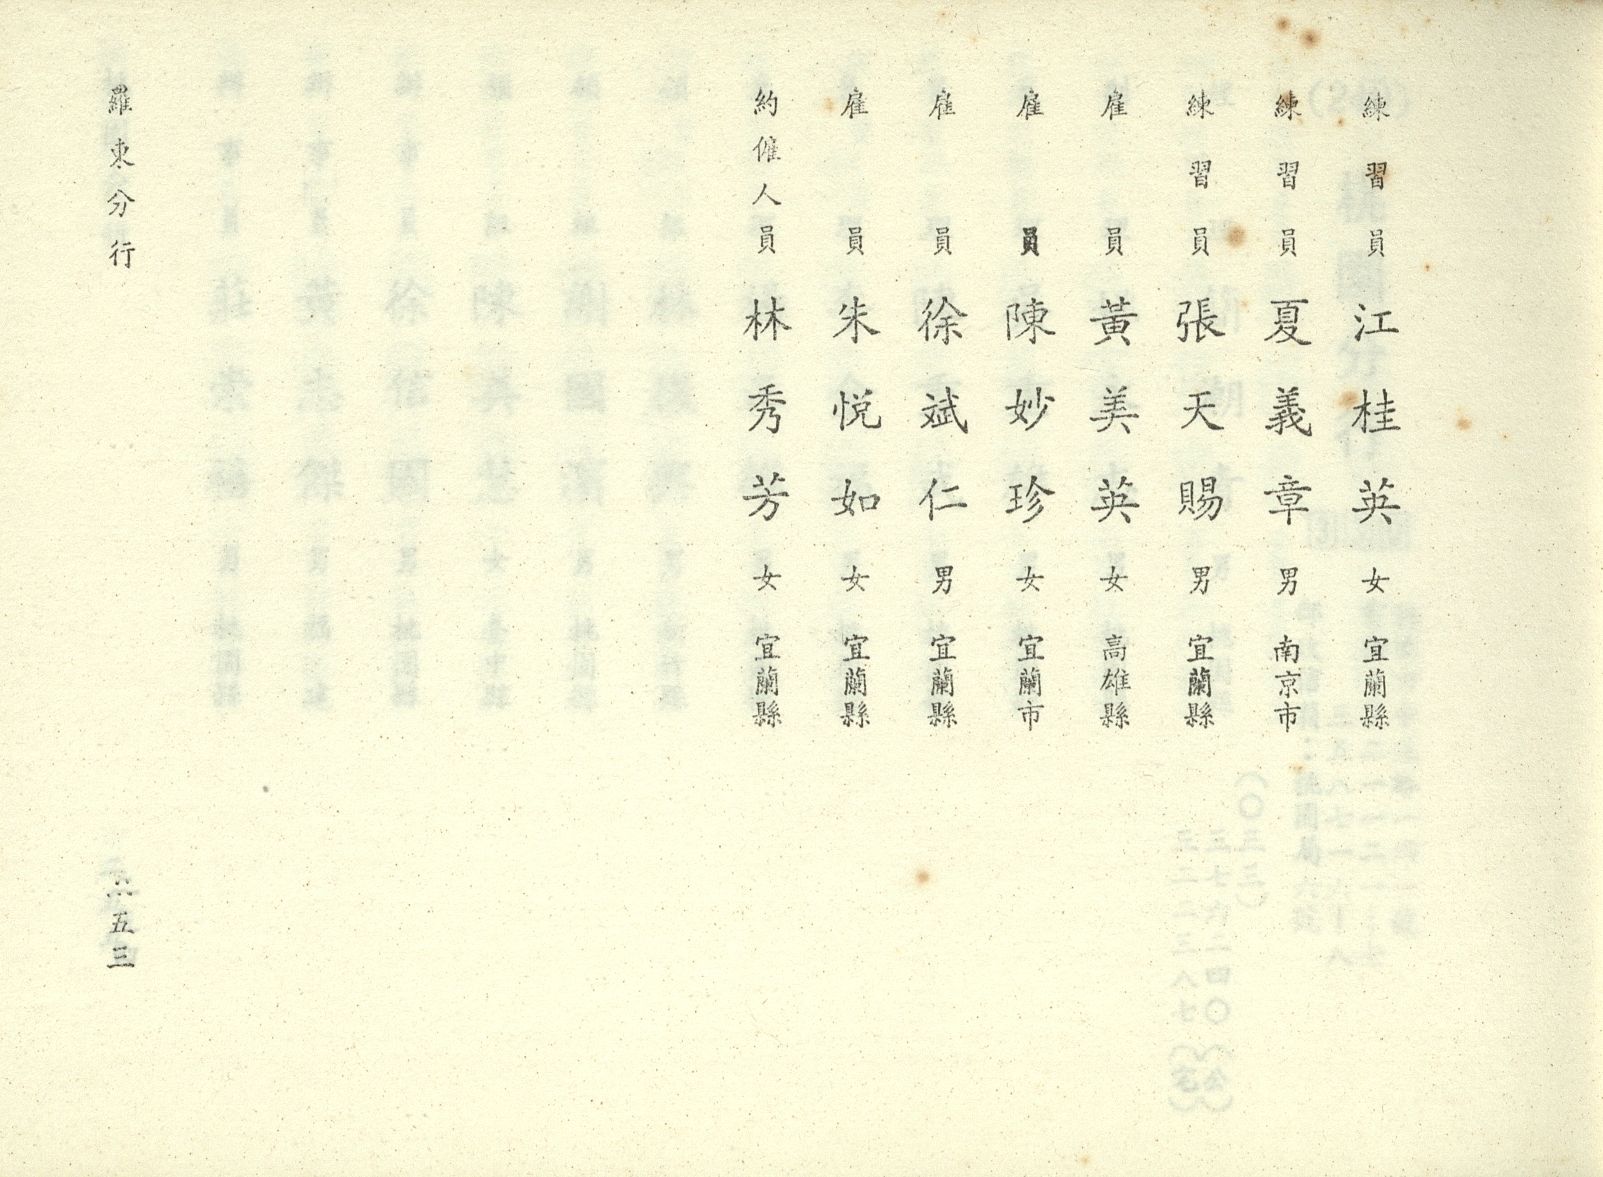 練習員 江桂英 女 宜蘭縣
練習員 夏義章 男 南京市
練習員 張天賜 男 宜蘭縣
雇員 黃美英 女 高雄縣
雇員 陳妙珍 女 宜蘭市
雇員 徐斌仁 男 宜蘭縣
雇員 朱悅如 女 宜蘭縣
約僱人員 林秀芳 女 宜蘭縣
羅東分行
六五三